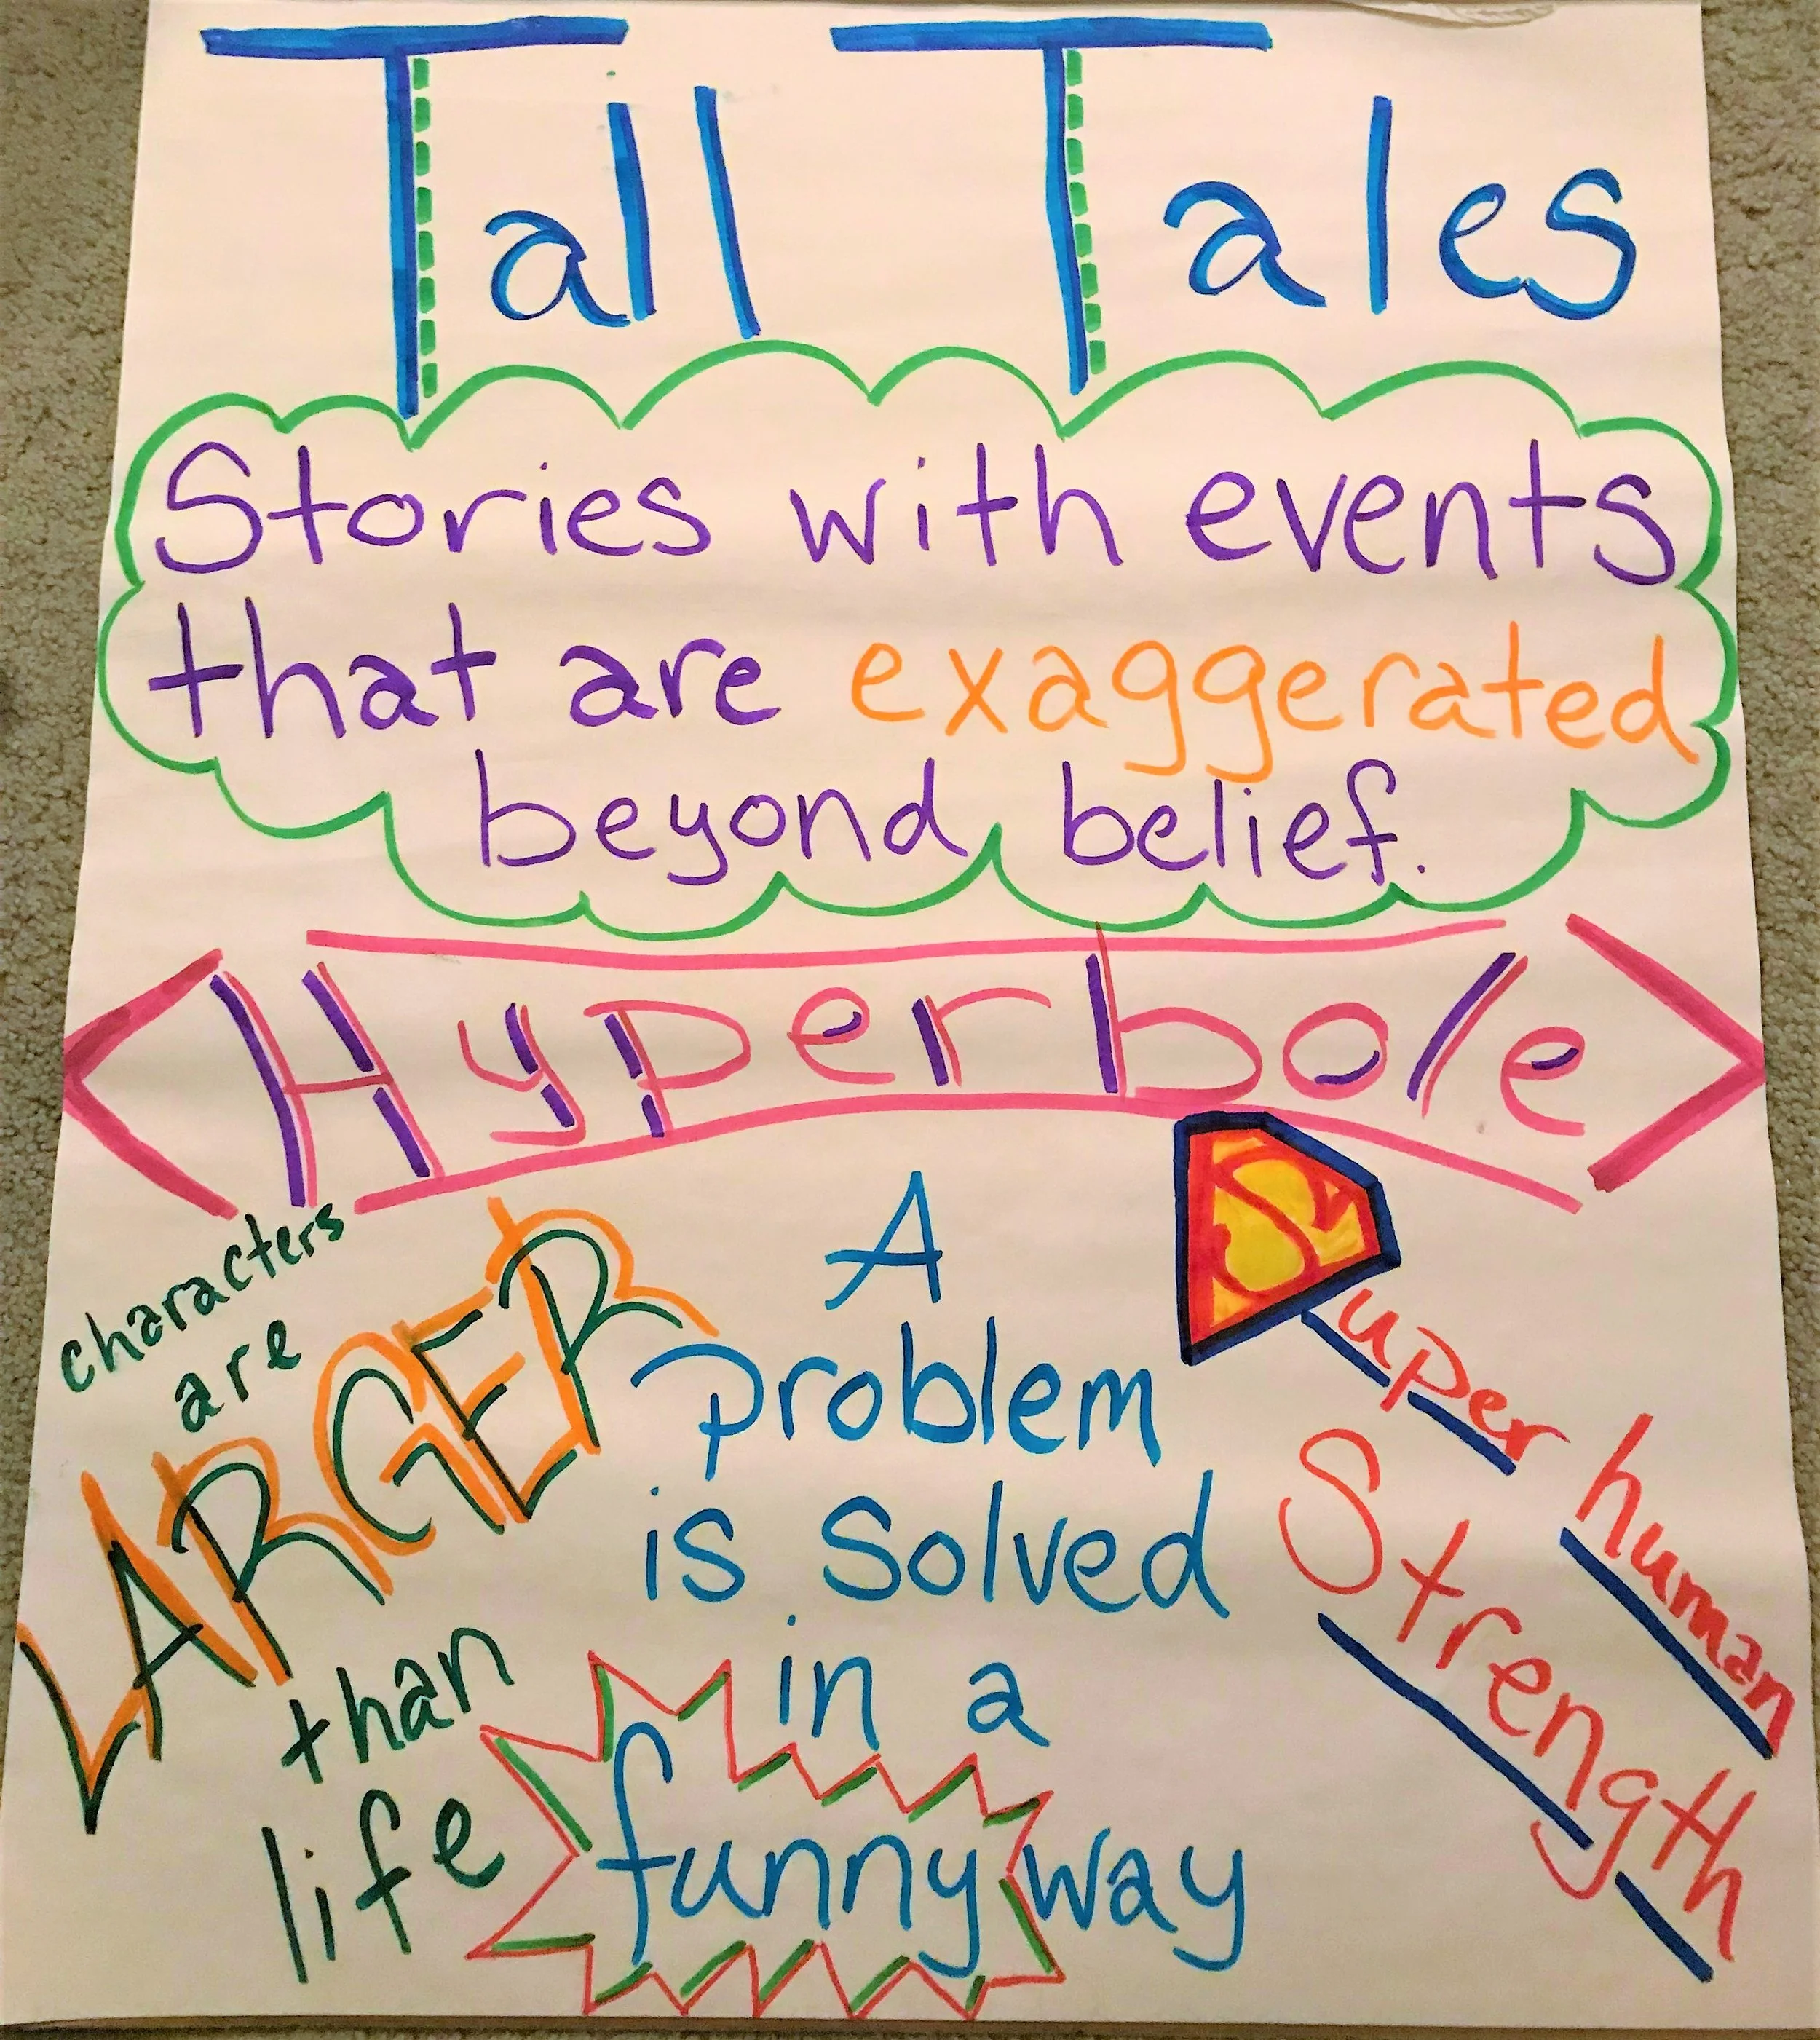 Tall Tales
Stories with events
that are exaggerated
beyond belief.
Hyperbole
characters
are
LARGER
than
life
A
problem
is solved
in a
funny way
Super human
Strength